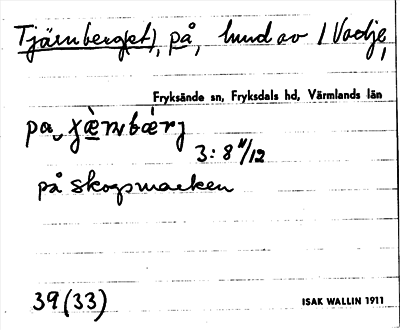 Tjärnberg(et), på, hund av / Vadje,
Fryksände sn, Fryksdals hd, Värmlands län
3:8 11/12
på skogsmarken
39 (33)
ISAK WALLIN 1911